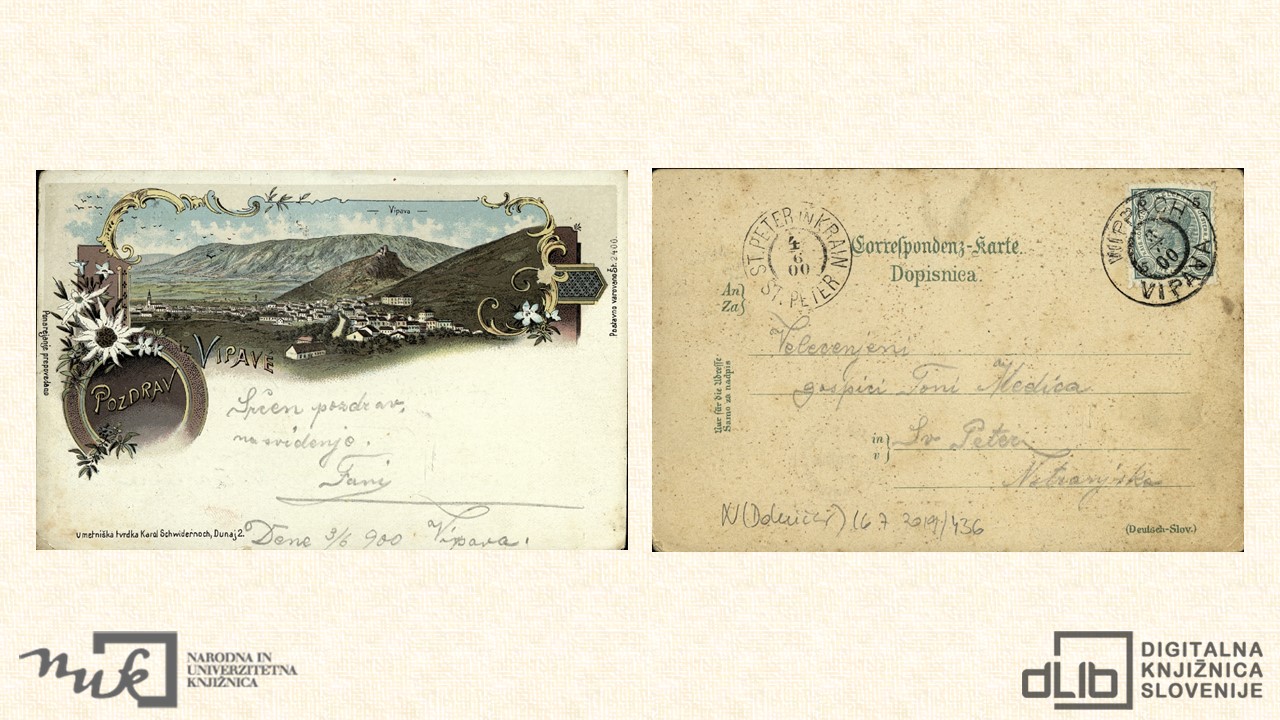 Vipava
Ponarejanje prepovedano
Postavno varovano Št. 2400.
POZDRAV
IZ VIPAVE
Srčen pozdrav,
na svidenje.
Fani
Dene 3/6 900 Vipava.
Umetniška tvrdka Karol Schwidernoch, Dunaj 2.
ST. PETER IN KRAIN
4
6
00
ST. PETER
Correspondenz-Karte.
Dopisnica.
5 5
WIPPACH
00
VIPAVA
An
Za
Nur für die Adresse
Samo za nadpis
Velecenjeni
gospici Toni Medica
in
v
Sv Peter
Notranjsko
(Deutsch-Slov.)
nuk
NARODNA IN
UNIVERZITETNA
KNJIŽNICA
dLib
DIGITALNA
KNJIŽNICA
SLOVENIJE